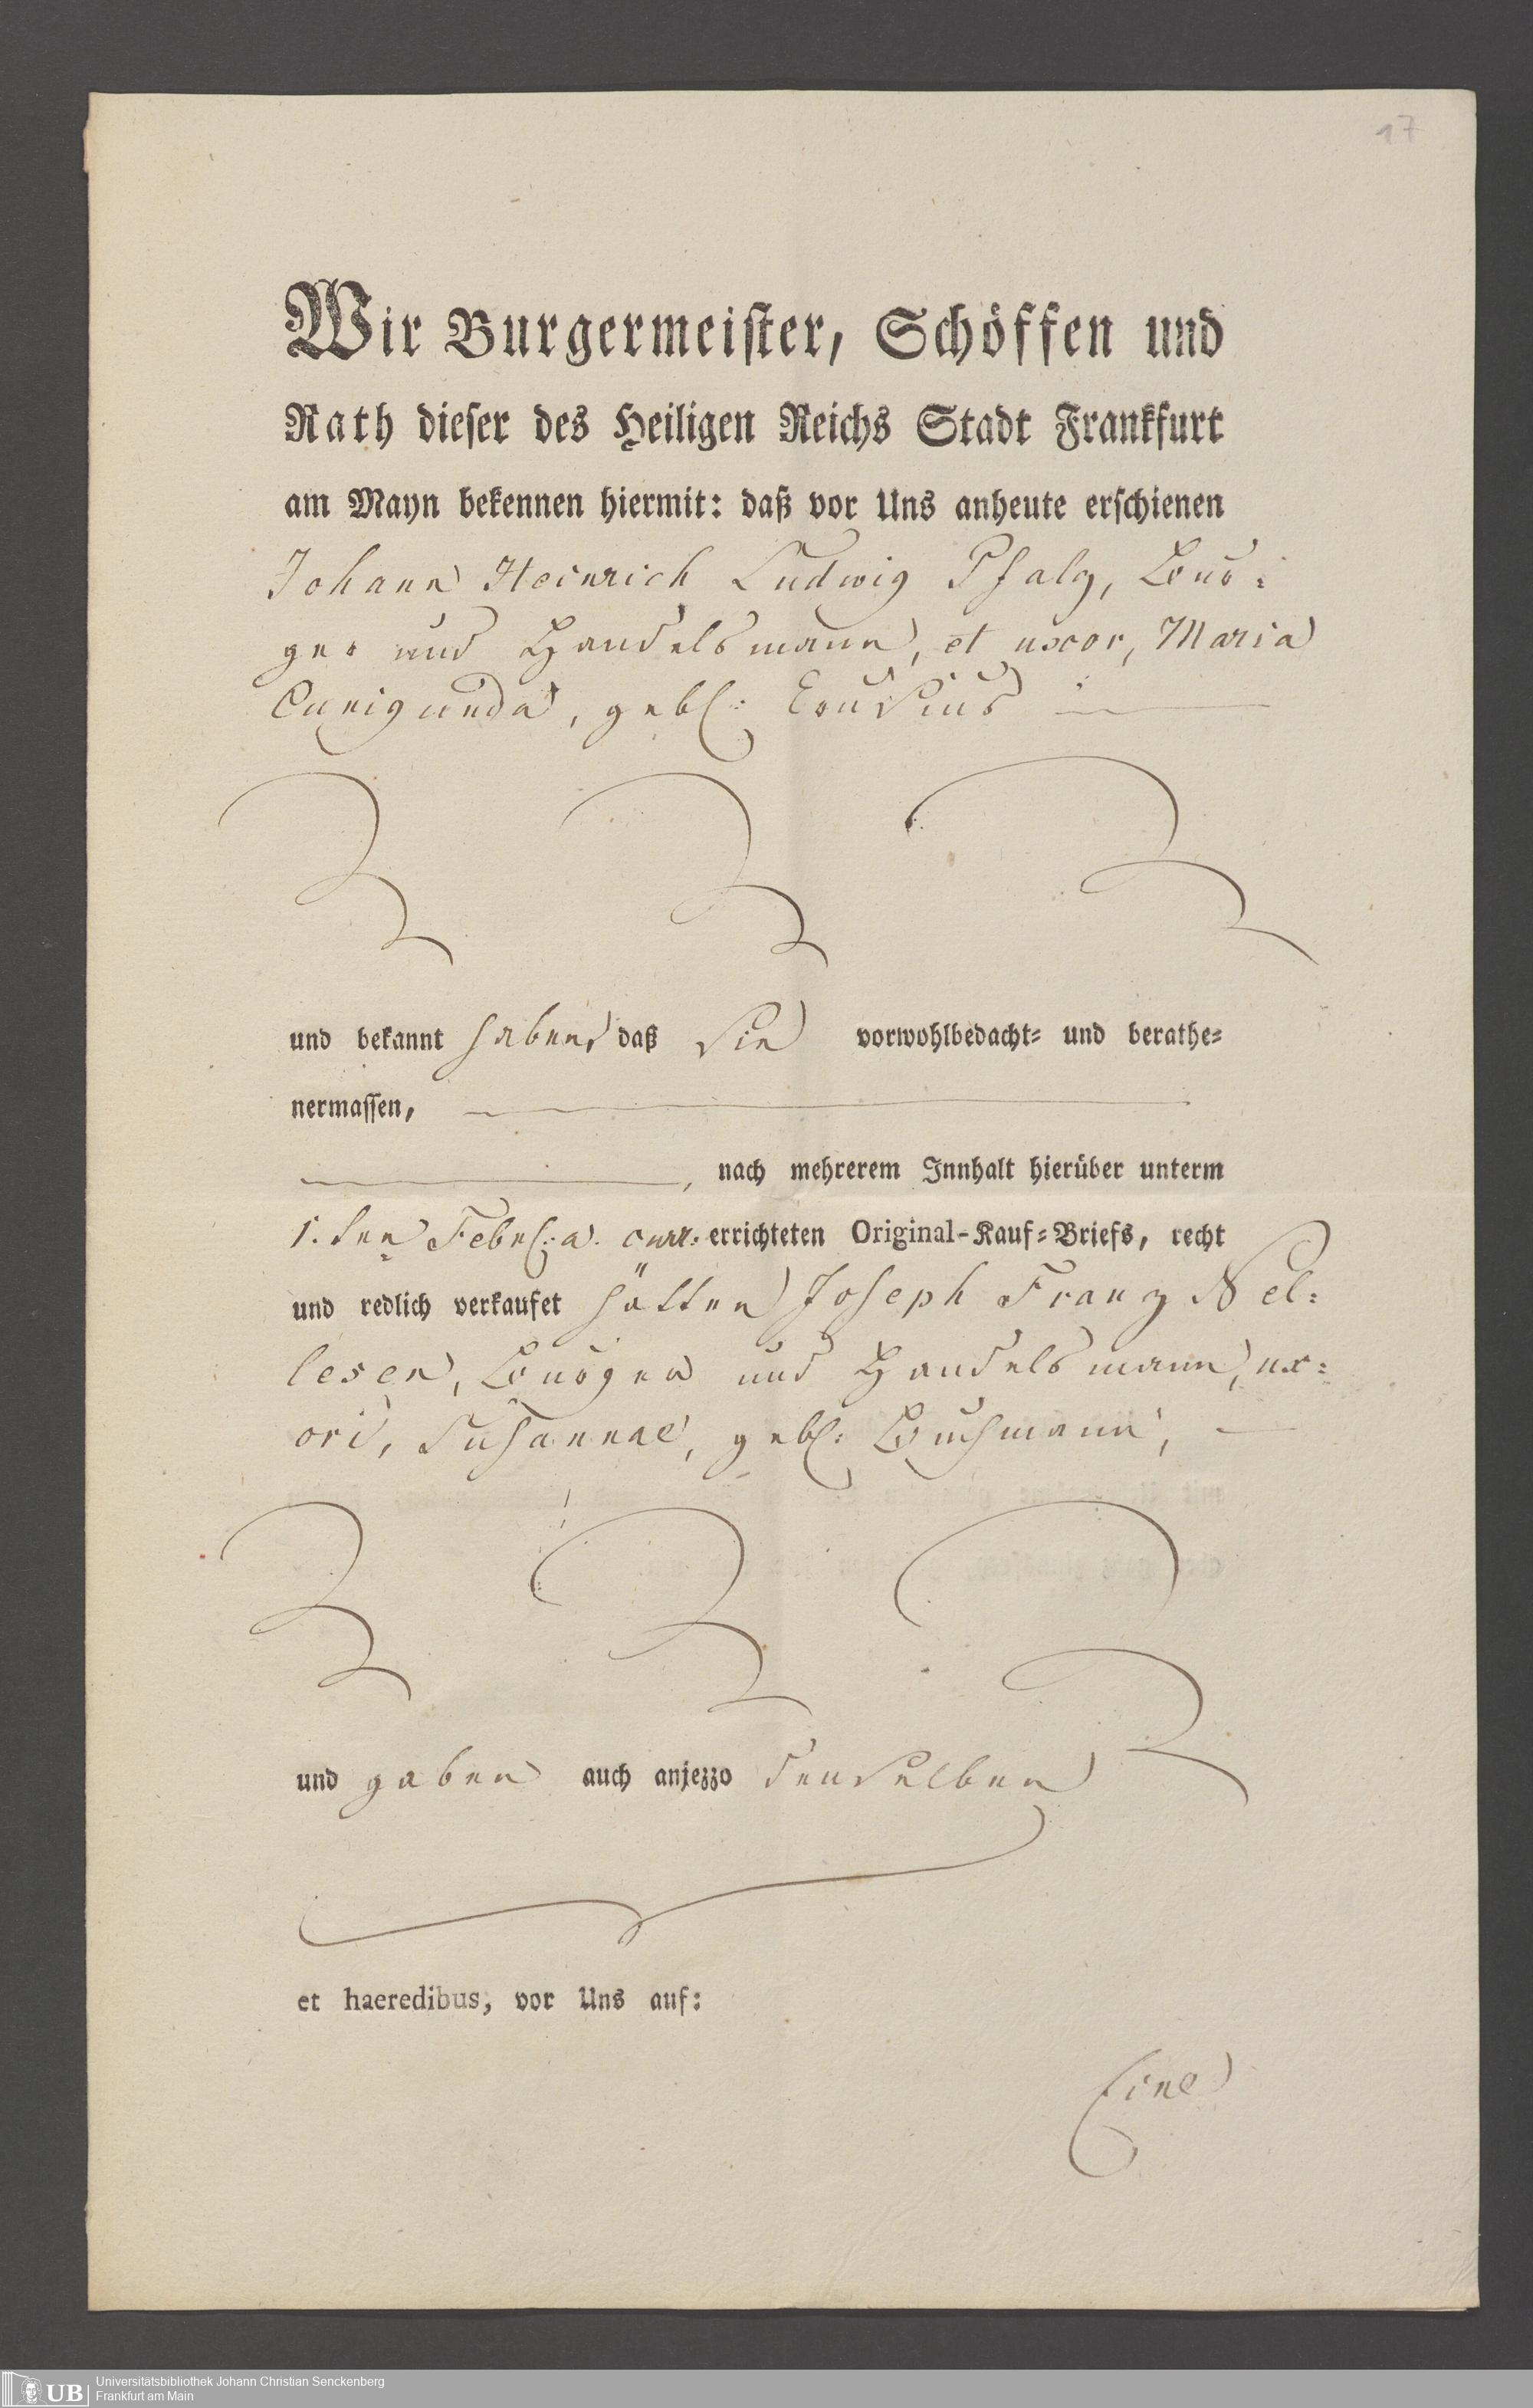 17
Wir Burgermeister, Schöffen und
Rath dieser des Heiligen Reichs Stadt Frankfurt
am Mayn bekennen hiermit: daß vor Uns anheute erschienen
Johann Heinrich Ludwig Pfalz, Bur:
ger und Handelsmann, et uxor, Maria
Cunigunda, gebl: Crusius
und bekannt haben, daß sie vorwohlbedacht= und berathe=
nermassen,
, nach mehrerem Innhalt hierüber unterm
1.ten Febr: a. curr: errichteten Original-Kauf=Briefs, recht
und redlich verkaufet hätten Joseph Franz Nel:
lesen, Burger und Handelsmann, ux:
ori, Susannae, gebl: Buchmann,
und gaben auch anjezzo denselben
et haeredibus, vor Uns auf:
Eine
UB Universitätsbibliothek Johann Christian Senckenberg
Frankfurt am Main